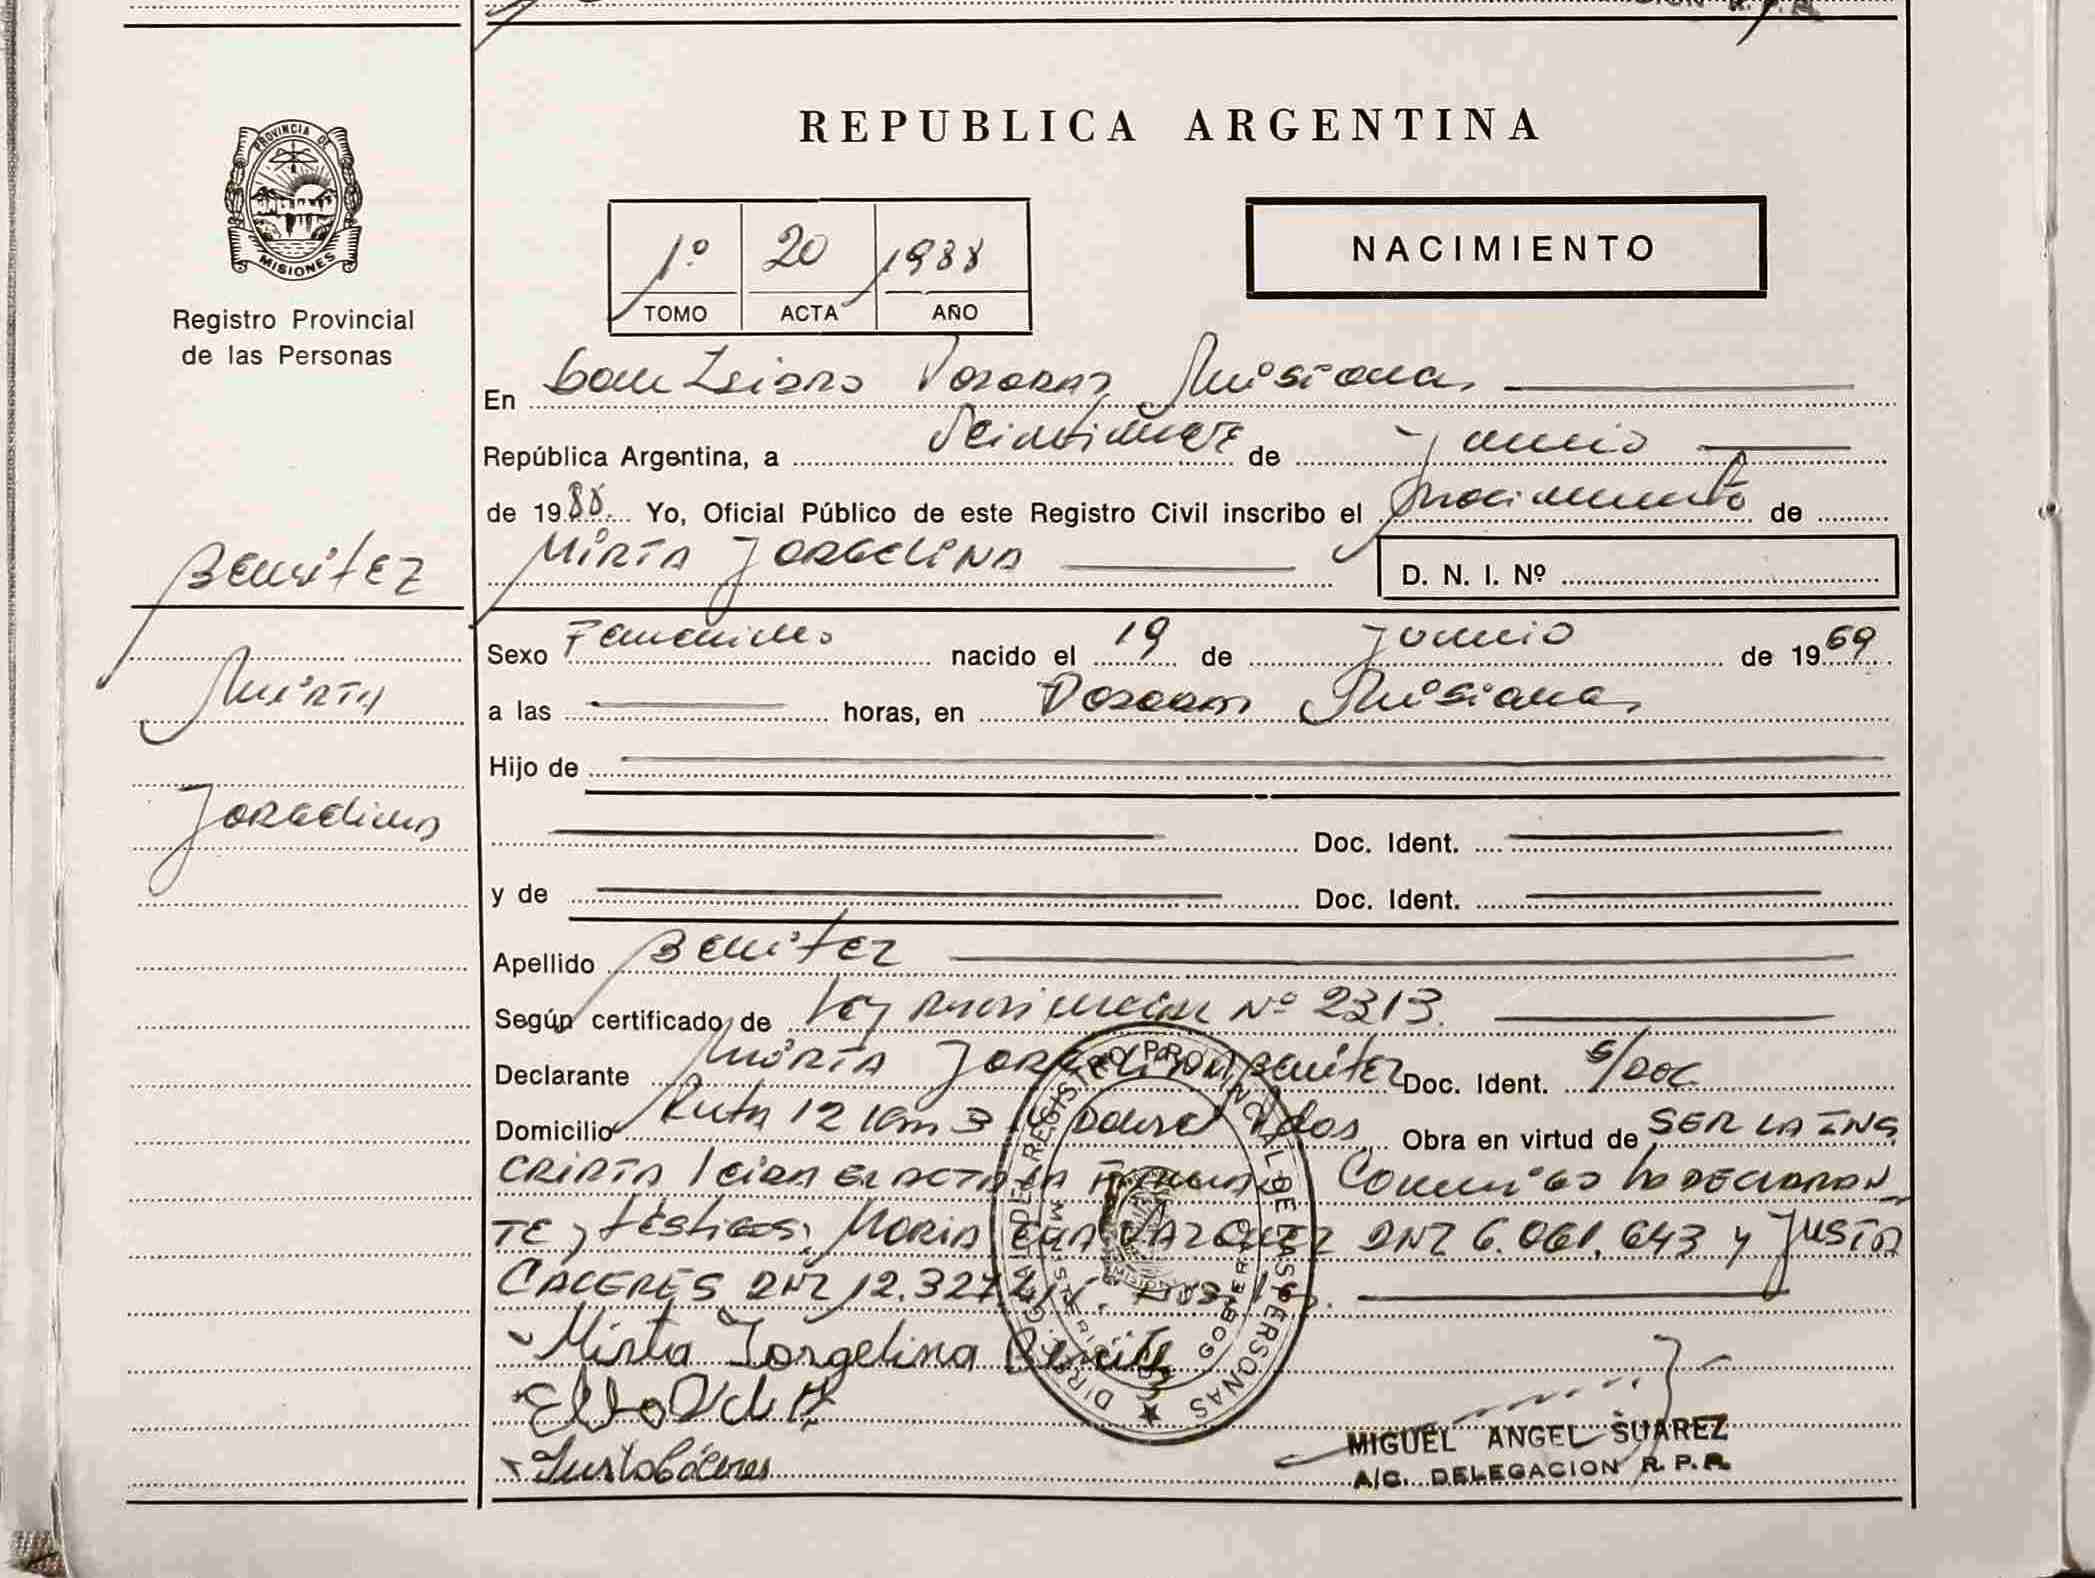 PROVINCIA DE
MISIONES
Registro Provincial
de las Personas
Benitez
Mirta
Jorgelina
REPUBLICA ARGENTINA
1º 20 1988
TOMO ACTA AÑO
NACIMIENTO
En San Isidro Posadas Misiones
República Argentina, a de Junio
de 1988. Yo, Oficial Público de este Registro Civil inscribo el nacimiento de
MIRTA JORGELINA
D. N. I. Nº
Sexo Femenino nacido el 19 de Junio de 1969
a las horas, en Posadas Misiones
Hijo de
Doc. Ident.
y de Doc. Ident.
Apellido Benitez
Según certificado de Ley Nº 2313.
Declarante Mirta Jorgelina Benitez Doc. Ident. S/DOC
Domicilio Ruta 12 Km 3 Obra en virtud de SER LA INS
CRIPTA Leida el acta la firman Conmigo la DECLARAN
TE y testigos: Maria VAZQUEZ DNI 6.061.643 y JUSTA
CACERES DNI 12.327.
Mirta Jorgelina Benitez
Justa Cáceres
DIR. GRAL. DEL REGISTRO PROVINCIAL DE LAS PERSONAS
MIGUEL ANGEL SUAREZ
A/C. DELEGACION R. P. P.